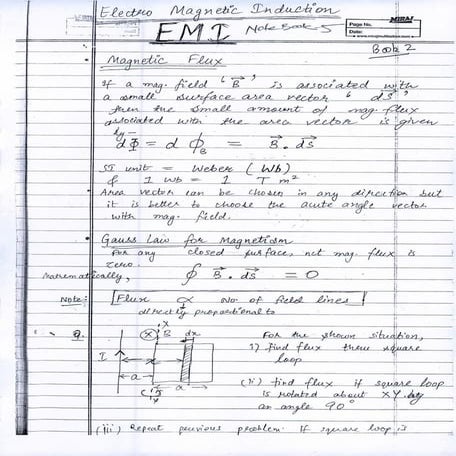 Electro Magnetic Induction
EMI Note Book 5
Page No.
Date:
MIRAJ
Book 2
Magnetic Flux
If a mag. field 'B⃗' is associated with
a small surface area vector 'ds⃗',
then the small amount of mag. flux
associated with the area vector is given
by
dΦ = dΦ_B = B⃗ . ds⃗
SI unit = Weber (Wb)
& 1 Wb = 1 T m²
Area vector can be chosen in any direction but
it is better to choose the acute angle vector
with mag. field.
Gauss Law for Magnetism
For any closed surface, net mag. flux is
zero.
Mathematically, ∮ B⃗ . ds⃗ = 0
Note: Flux ∝ no. of field lines
directly proportional to
Q. For the shown situation,
i) find flux thru square
loop
(ii) find flux if square loop
is rotated about XY by
an angle 90°
I
B
dx
x
a
a
(iii) Repeat previous problem if square loop is